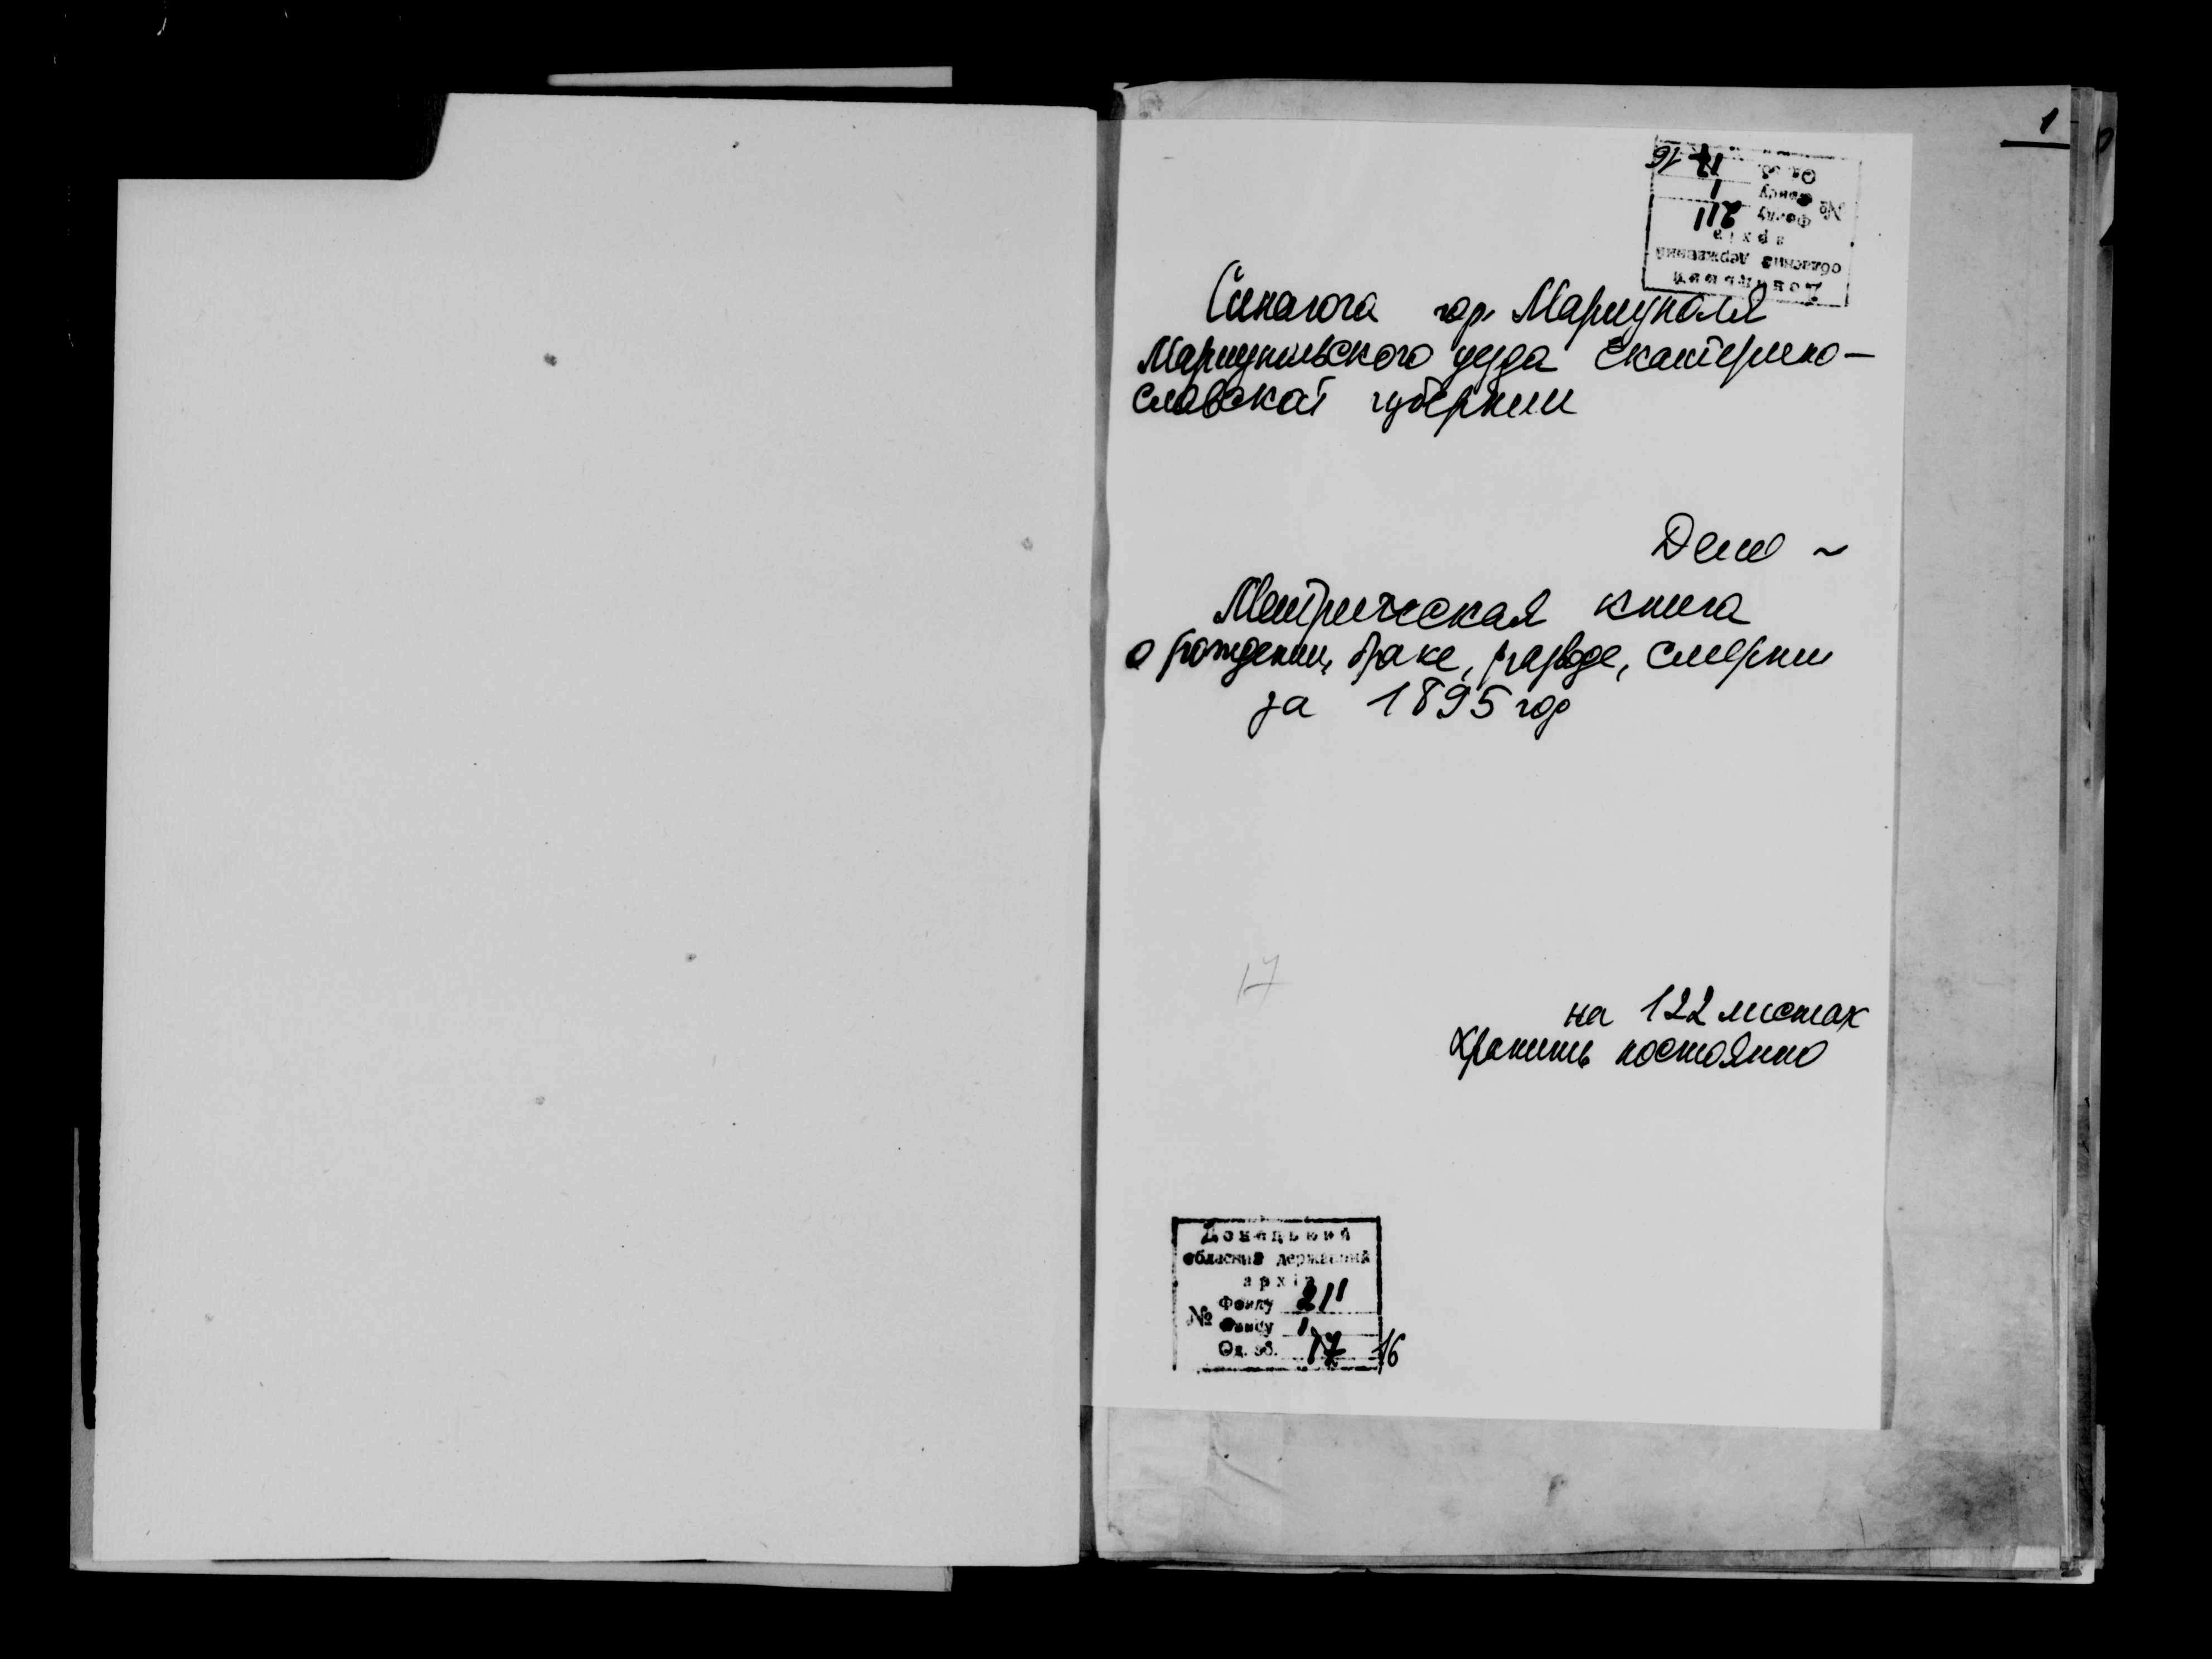 1
Донецький
обласний державний
архів
№ Фонду 211
Опису 1
Од. зб. 17 16
Синагога гор. Мариуполя
Мариупольского уезда Екатерино-
славской губернии
Дело ~
Метрическая книга
о рождении, браке, разводе, смерти
за 1895 год
17
на 122 листах
Хранить постоянно
Донецький
обласний державний
архів
№ Фонду 211
Опису 1
Од. зб. 17 16